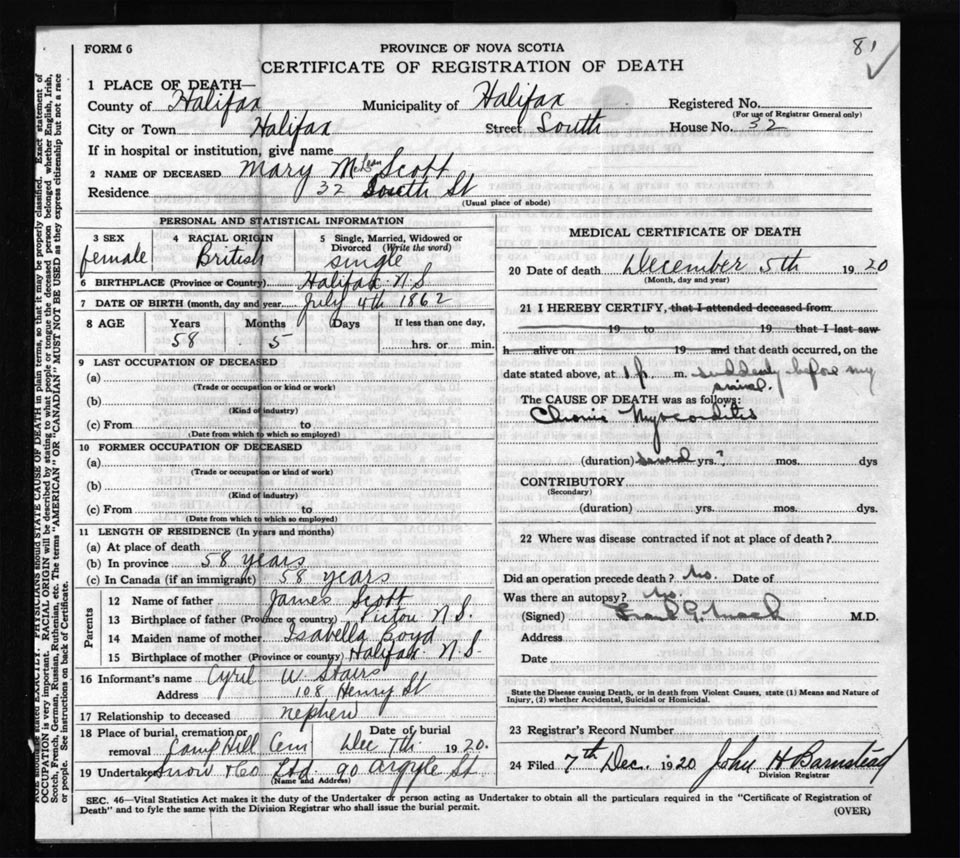 FORM 6
PROVINCE OF NOVA SCOTIA
81
CERTIFICATE OF REGISTRATION OF DEATH
1 PLACE OF DEATH—
County of Halifax Municipality of Halifax Registered No.
(For use of Registrar General only)
City or Town Halifax Street South House No. 32
If in hospital or institution, give name
2 NAME OF DECEASED Mary McLean Scott
Residence 32 South St
(Usual place of abode)
PERSONAL AND STATISTICAL INFORMATION
3 SEX 4 RACIAL ORIGIN 5 Single, Married, Widowed or
Divorced (Write the word)
female British single
6 BIRTHPLACE (Province or Country) Halifax N.S
7 DATE OF BIRTH (month, day and year) July 4th 1862
8 AGE Years Months Days If less than one day,
58 5 hrs. or min.
9 LAST OCCUPATION OF DECEASED
(a)
(Trade or occupation or kind or work)
(b)
(Kind of industry)
(c) From to
(Date from which to which so employed)
10 FORMER OCCUPATION OF DECEASED
(a)
(Trade or occupation or kind of work)
(b)
(Kind of industry)
(c) From to
(Date from which to which so employed)
11 LENGTH OF RESIDENCE (In years and months)
(a) At place of death
(b) In province 58 years
(c) In Canada (if an immigrant) 58 years
Parents
12 Name of father James Scott
13 Birthplace of father (Province or country) Pictou N.S.
14 Maiden name of mother Isabella Boyd
15 Birthplace of mother (Province or country) Halifax N.S.
16 Informant's name Cyril W. Stairs
Address 108 Henry St
17 Relationship to deceased nephew
18 Place of burial, cremation or Date of burial
removal Camp Hill Cem Dec 7th 1920.
19 Undertaker Snow & Co Ltd. 90 Argyle St
(Name and Address)
MEDICAL CERTIFICATE OF DEATH
20 Date of death December 5th 1920
(Month, day and year)
21 I HEREBY CERTIFY, that I attended deceased from
19 to 19 that I last saw
h alive on 19 and that death occurred, on the
date stated above, at 1 p. m. suddenly before my
arrival.
The CAUSE OF DEATH was as follows:
Chronic Myocarditis
(duration) several yrs.?, mos. dys
CONTRIBUTORY
(Secondary)
(duration) yrs. mos. dys.
22 Where was disease contracted if not at place of death?
Did an operation precede death? No. Date of
Was there an autopsy? No.
(Signed) G. Mack M.D.
Address
Date
State the Disease causing Death, or in death from Violent Causes, state (1) Means and Nature of
Injury, (2) whether Accidental, Suicidal or Homicidal.
23 Registrar's Record Number
24 Filed 7th Dec. 1920 John H Barnstead
Division Registrar
SEC. 46—Vital Statistics Act makes it the duty of the Undertaker or person acting as Undertaker to obtain all the particulars required in the "Certificate of Registration of
Death" and to fyle the same with the Division Registrar who shall issue the burial permit.
(OVER)
stated EXACTLY. PHYSICIANS should STATE CAUSE OF DEATH in plain terms, so that it may be properly classified. Exact statement of
OCCUPATION is very important. RACIAL ORIGIN will be described by stating to what people or tongue the deceased person belonged whether English, Irish,
Scotch, French, German, Russian, Ruthenian, etc. The terms "AMERICAN" OR "CANADIAN" MUST NOT BE USED as they express citizenship but not a race
or people. See instructions on back of Certificate.